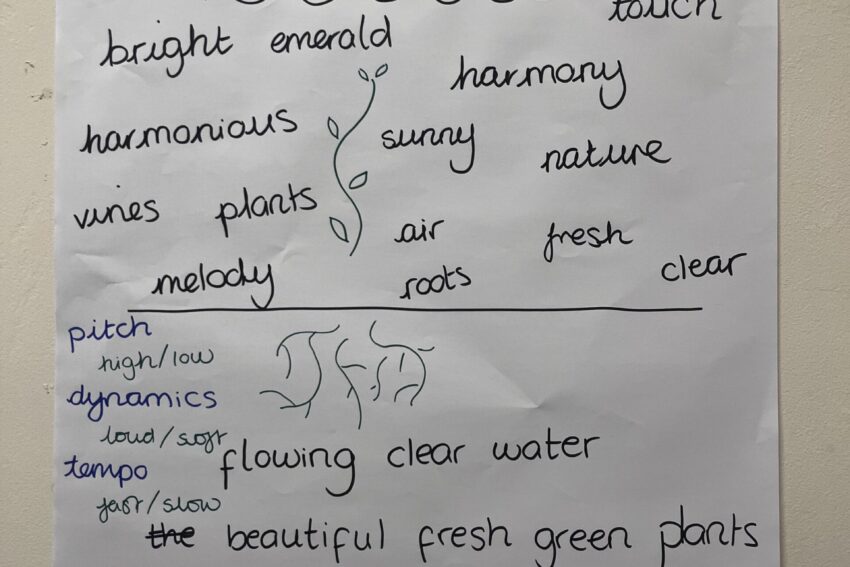 touch
bright emerald
harmony
harmonious
sunny
nature
vines plants
air
fresh
melody
roots
clear
pitch
high/low
dynamics
loud/soft
flowing clear water
tempo
fast/slow
the beautiful fresh green plants